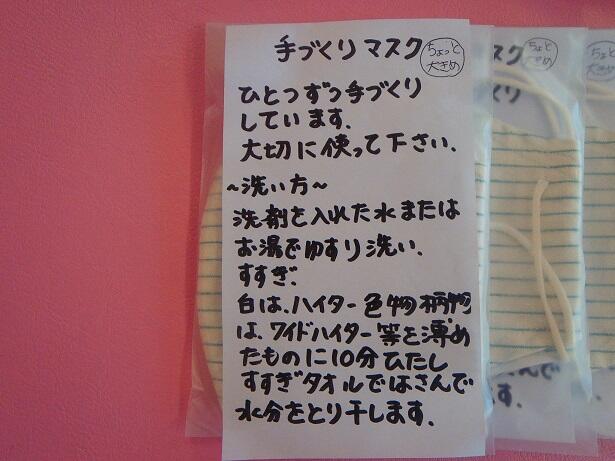 手づくりマスク
ちょっと
大きめ
ひとつずつ手づくり
しています.
大切に使って下さい.
~洗い方~
洗剤を入れた水または
お湯でゆすり洗い.
すすぎ.
白は、ハイター色物柄物
は、ワイドハイター等を薄め
たものに10分ひたし
すすぎタオルではさんで
水分をとり干します.
スク
ちょっと
大きめ
くり
ちょっと
大きめ